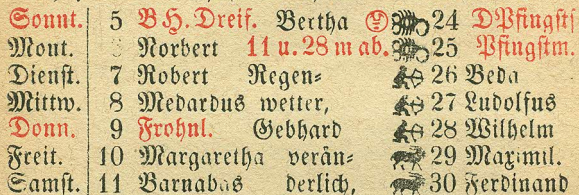 Sonnt. 5 B H. Dreif. Bertha 24 D Pfingstf
Mont. Norbert 11 u. 28 m ab. 25 Pfingstm.
Dienst. 7 Robert Regen= 26 Beda
Mittw. 8 Medardus wetter, 27 Ludolfus
Donn. 9 Frohnl. Gebhard 28 Wilhelm
Freit. 10 Margaretha verän= 29 Maximil.
Samst. 11 Barnabas derlich, 30 Ferdinand